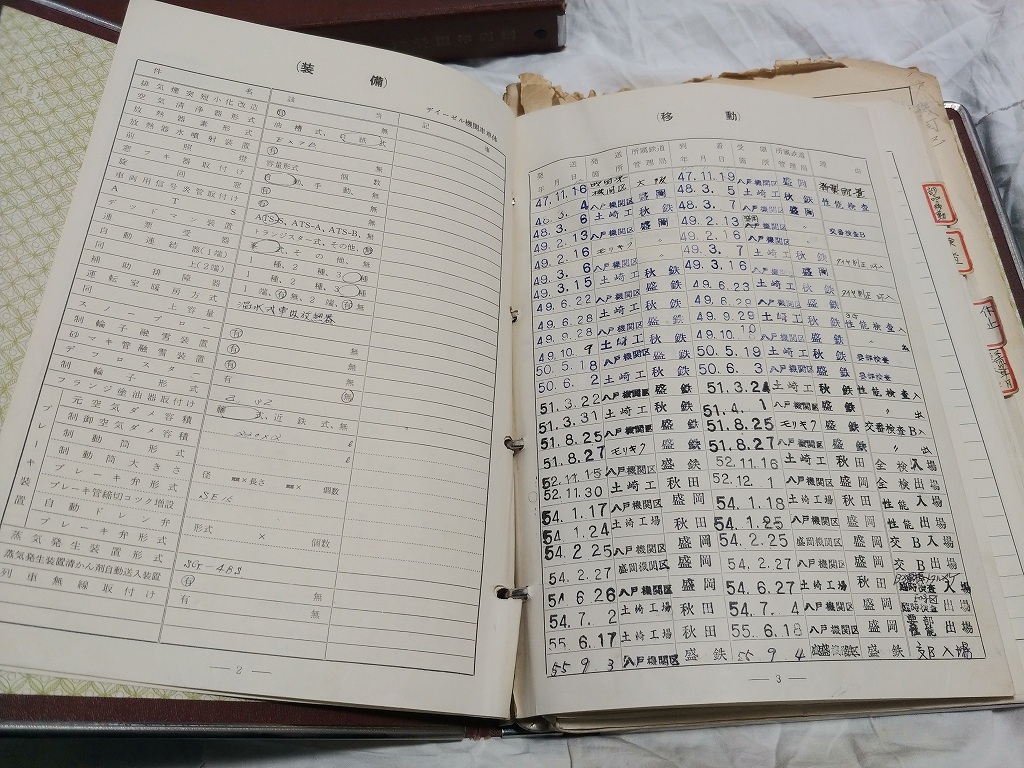 (装 備)
ディーゼル機関車車体
件 名 記 事
排気煙突短小化改造 有 該 当 無
空気清浄器形式 油槽式、紙状
放熱器素形式
放熱器水噴射装置 有 無
前照燈 容量形式 個数
窓フキ器取付け 自動、手動、無
旋回窓 有 無
車両用信号炎管取付け 有 無
ATS ATS-S, ATS-A, ATS-B, 無
デッドマン装置 トランジスター式、その他、無
通票受器 その他、無
自動連結器(1端) 1種、2種、3種
同上(2端) 1種、2種、3種
補助排障器 1端、有無、2端、有無
運転室暖房方式 温水式車内放熱器
同上容量
スノープロー 有 無
制輪子融雪装置 有 無
砂マキ管融雪装置 有 無
デフロスター 有 無
制輪子形式
フランジ塗油器取付け 式、近鉄式、無
ブレーキ装置
元空気ダメ容積 ℓ
制御空気ダメ容積 ℓ
制動筒形式
制動筒大きさ 径 mm×長さ mm× 個数
ブレーキ弁形式
ブレーキ管締切コック増設
自動ドレン弁 形式 × 個数
ブレーキ弁形式
蒸気発生装置形式 SG-4BS
蒸気発生装置清かん剤自動送入装置 有 無
列車無線取付け 有 無
— 2 —
(移 動)
発送 年月日 発送箇所 所属鉄道管理局 到着 年月日 受領箇所 所属鉄道管理局 理由
47.11.16 吹田第 機関区 大阪 47.11.19 八戸機関区 盛岡 新製配置
48.3.4 八戸機関区 盛岡 48.3.5 土崎工 秋鉄 性能検査
48.3.6 土崎工 秋鉄 48.3.7 八戸機関区 盛岡
49.2.13 八戸機関区 盛岡 49.2.13 盛岡 〃 交番検査B
49.2.16 モリキフ 〃 49.2.16 八戸機関区 〃
49.3.6 八戸機関区 盛岡 49.3.7 土崎工 秋鉄
49.3.15 土崎工 秋鉄 49.3.16 八戸機関区 盛岡
49.6.22 八戸機関区 盛鉄 49.6.23 土崎工 秋鉄
49.6.28 土崎工 秋鉄 49.6.29 八戸機関区 盛鉄
49.9.28 八戸機関区 盛鉄 49.9.29 土崎工 秋鉄 性能検査入
49.10.9 土崎工 秋鉄 49.10.10 八戸機関区 盛鉄 〃 出
50.5.18 八戸機関区 盛鉄 50.5.19 土崎工 秋鉄 要部検査
50.6.2 土崎工 秋鉄 50.6.3 八戸機関区 盛鉄 要部検査
51.3.22 八戸機関区 盛鉄 51.3.24 土崎工 秋鉄 性能検査入
51.3.31 土崎工 秋鉄 51.4.1 八戸機関区 盛鉄 〃 出
51.8.25 八戸機関区 盛鉄 51.8.25 モリキフ 盛鉄 交番検査B入
51.8.27 モリキフ 盛鉄 51.8.27 八戸機関区 盛鉄 〃 出
52.11.15 八戸機関区 盛鉄 52.11.16 土崎工 秋田 全検入場
52.11.30 土崎工 秋田 52.12.1 八戸機関区 盛岡 全検出場
54.1.17 八戸機関区 盛岡 54.1.18 土崎工場 秋田 性能入場
54.1.24 土崎工場 秋田 54.1.25 八戸機関区 盛岡 性能出場
54.2.25 八戸機関区 盛岡 54.2.25 盛岡機関区 盛岡 交B入場
54.2.27 盛岡機関区 盛岡 54.2.27 八戸機関区 盛岡 交B出場
54.6.26 八戸機関区 盛岡 54.6.27 土崎工場 秋田 臨時検査 入場
54.7.2 土崎工場 秋田 54.7.4 八戸機関区 盛岡 臨時検査 出場
55.6.17 土崎工場 秋田 55.6.18 八戸機関区 盛岡 要部 性能 出場
55.9.3 八戸機関区 盛鉄 55.9.4 盛岡機関区 盛鉄 交B入場
— 3 —